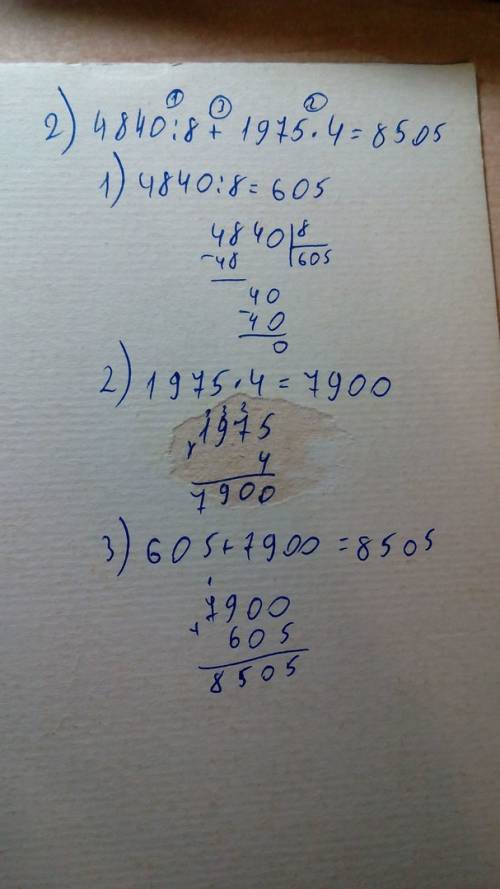 ① ③ ②
2) 4840:8+ 1975·4=8505
1) 4840:8=605
4840 8
-48 605
40
-40
0
2) 1975·4=7900
3 3 2
1975
x 4
7900
3) 605+7900=8505
1
7900
+ 605
8505